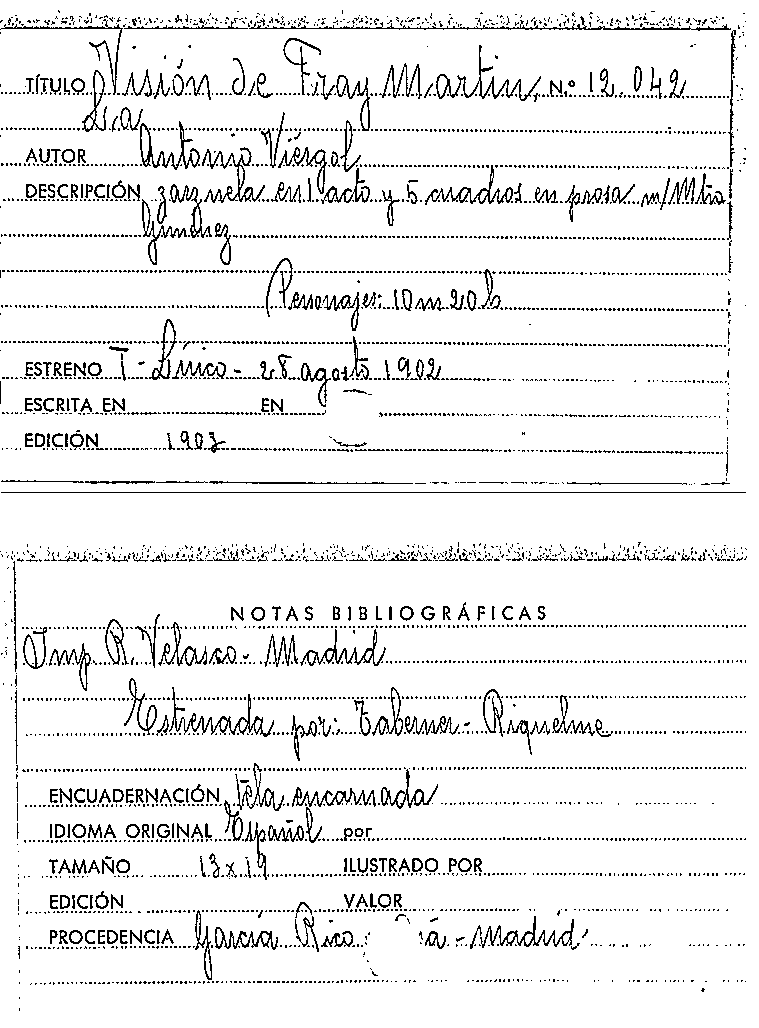 TÍTULO Visión de Fray Martin, N.º 12.042
La
AUTOR Antonio Viérgol
DESCRIPCIÓN zarzuela en 1 acto y 5 cuadros en prosa m/Mtro
Giménez
Personajes: 10 m 20 h
ESTRENO T - Lírico - 28 agosto 1902
ESCRITA EN EN
EDICIÓN 1903
NOTAS BIBLIOGRÁFICAS
Imp. R. Velasco - Madrid
Estrenada por: Taberner - Riquelme
ENCUADERNACIÓN tela encarnada
IDIOMA ORIGINAL Español por
TAMAÑO 13 x 19 ILUSTRADO POR
EDICIÓN VALOR
PROCEDENCIA García Rico - Madrid